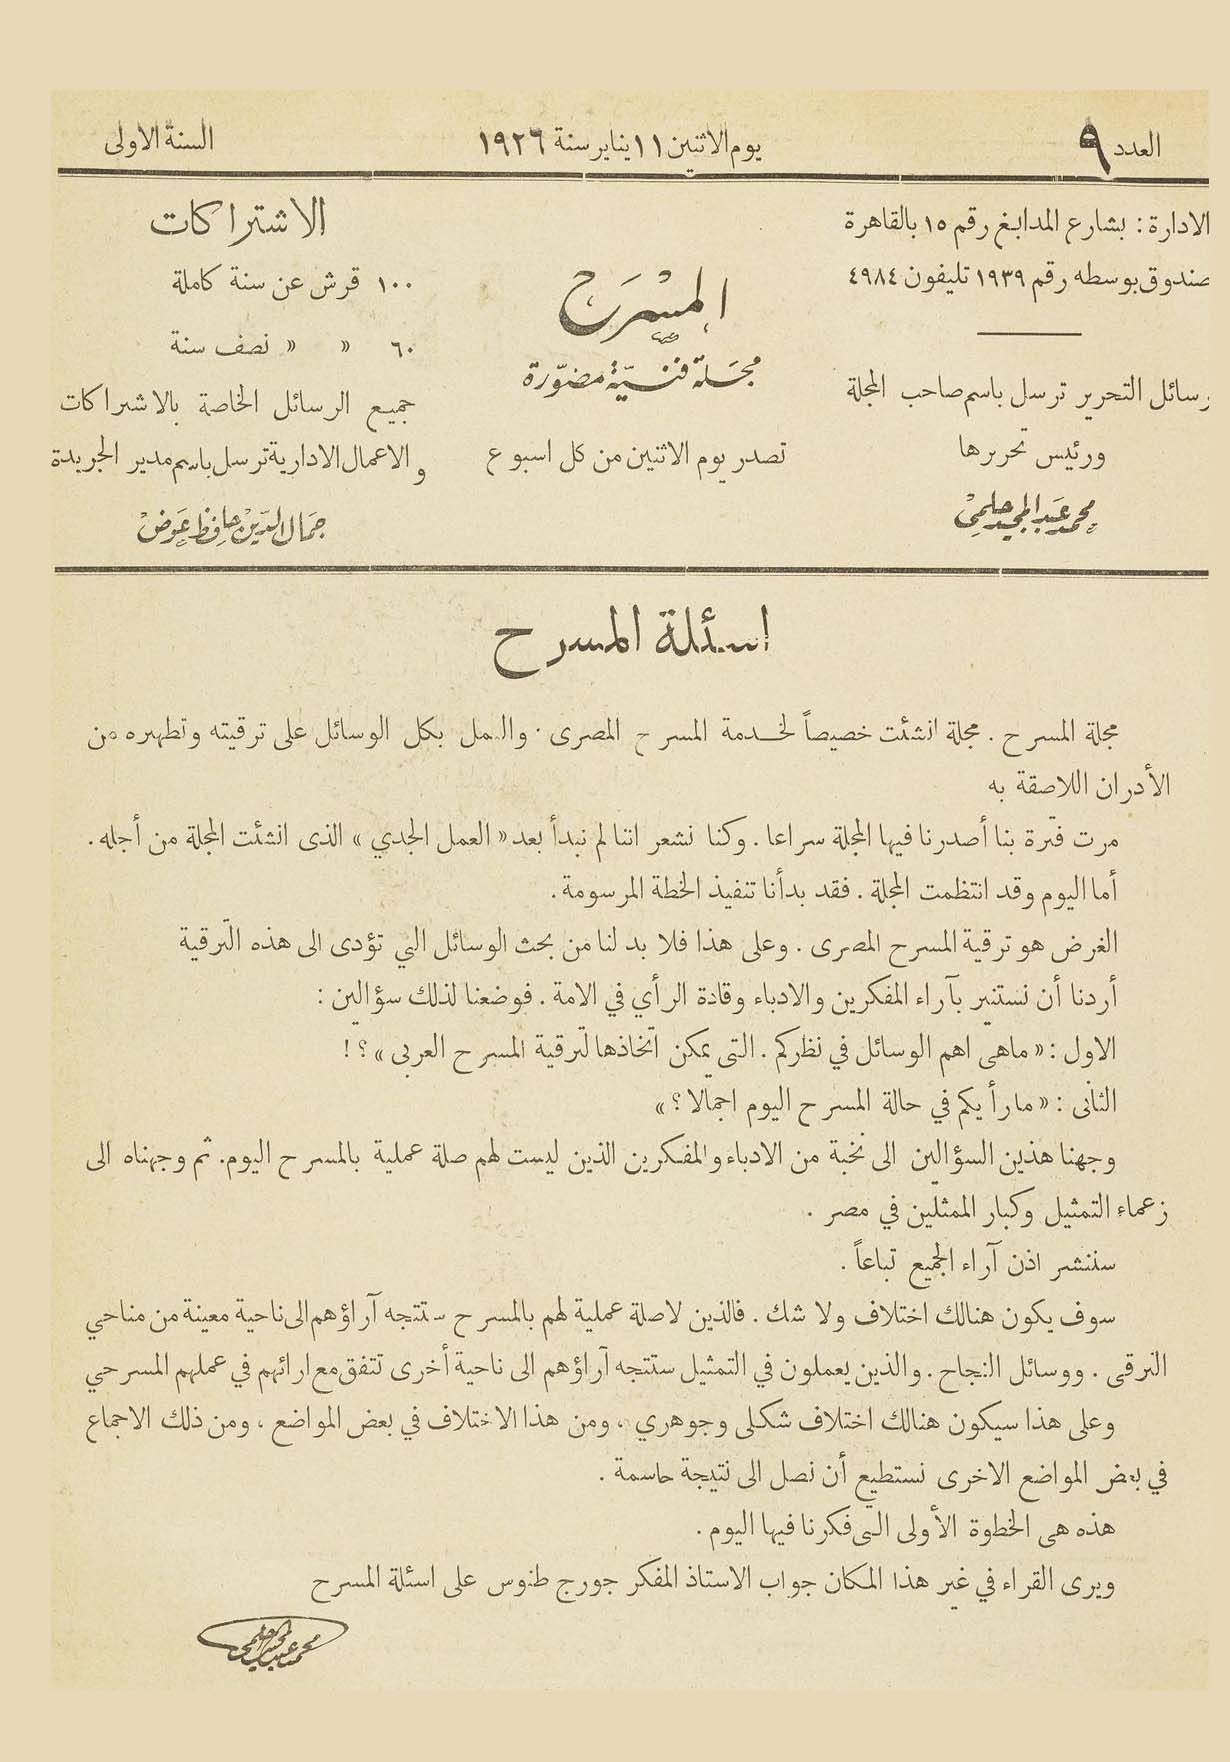 العدد ٩
يوم الاثنين ١١ يناير سنة ١٩٢٦
السنة الاولى
الادارة : بشارع المدابغ رقم ١٥ بالقاهرة
صندوق بوسطه رقم ١٩٣٩ تليفون ٤٩٨٤
رسائل التحرير ترسل باسم صاحب المجلة
ورئيس تحريرها
محمد عبد المجيد حلمي
المسرح
مجلة فنية مصورة
تصدر يوم الاثنين من كل اسبوع
الاشتراكات
١٠٠ قرش عن سنة كاملة
٦٠ » » نصف سنة
جميع الرسائل الخاصة بالاشتراكات
والاعمال الادارية ترسل باسم مدير الجريدة
جمال الدين حافظ عوض
اسئلة المسرح
مجلة المسرح . مجلة انشئت خصيصاً لخدمة المسرح المصرى . والعمل بكل الوسائل على ترقيته وتطهيره من
الأدران اللاصقة به
مرت فترة بنا أصدرنا فيها المجلة سراعا . وكنا نشعر اننا لم نبدأ بعد « العمل الجدي » الذى انشئت المجلة من أجله .
أما اليوم وقد انتظمت المجلة . فقد بدأنا تنفيذ الخطة المرسومة .
الغرض هو ترقية المسرح المصرى . وعلى هذا فلا بد لنا من بحث الوسائل التي تؤدى الى هذه الترقية
أردنا أن نستنير بآراء المفكرين والادباء وقادة الرأي في الامة . فوضعنا لذلك سؤالين :
الاول : « ماهى اهم الوسائل في نظركم . التى يمكن اتخاذها لترقية المسرح العربى » ؟ !
الثانى : « ما رأيكم في حالة المسرح اليوم اجمالا ؟ »
وجهنا هذين السؤالين الى نخبة من الادباء والمفكرين الذين ليست لهم صلة عملية بالمسرح اليوم. ثم وجهناه الى
زعماء التمثيل وكبار الممثلين في مصر .
سننشر اذن آراء الجميع تباعاً .
سوف يكون هنالك اختلاف ولا شك . فالذين لاصلة عملية لهم بالمسرح ستتجه آراؤهم الى ناحية معينة من مناحي
الترقى . ووسائل النجاح . والذين يعملون في التمثيل ستتجه آراؤهم الى ناحية أخرى تتفق مع ارائهم في عملهم المسرحي
وعلى هذا سيكون هنالك اختلاف شكلى وجوهري ، ومن هذا الاختلاف في بعض المواضع ، ومن ذلك الاجماع
في بعض المواضع الاخرى نستطيع أن نصل الى نتيجة حاسمة .
هذه هى الخطوة الأولى التى فكرنا فيها اليوم .
ويرى القراء في غير هذا المكان جواب الاستاذ المفكر جورج طنوس على اسئلة المسرح
محمد عبد المجيد حلمي